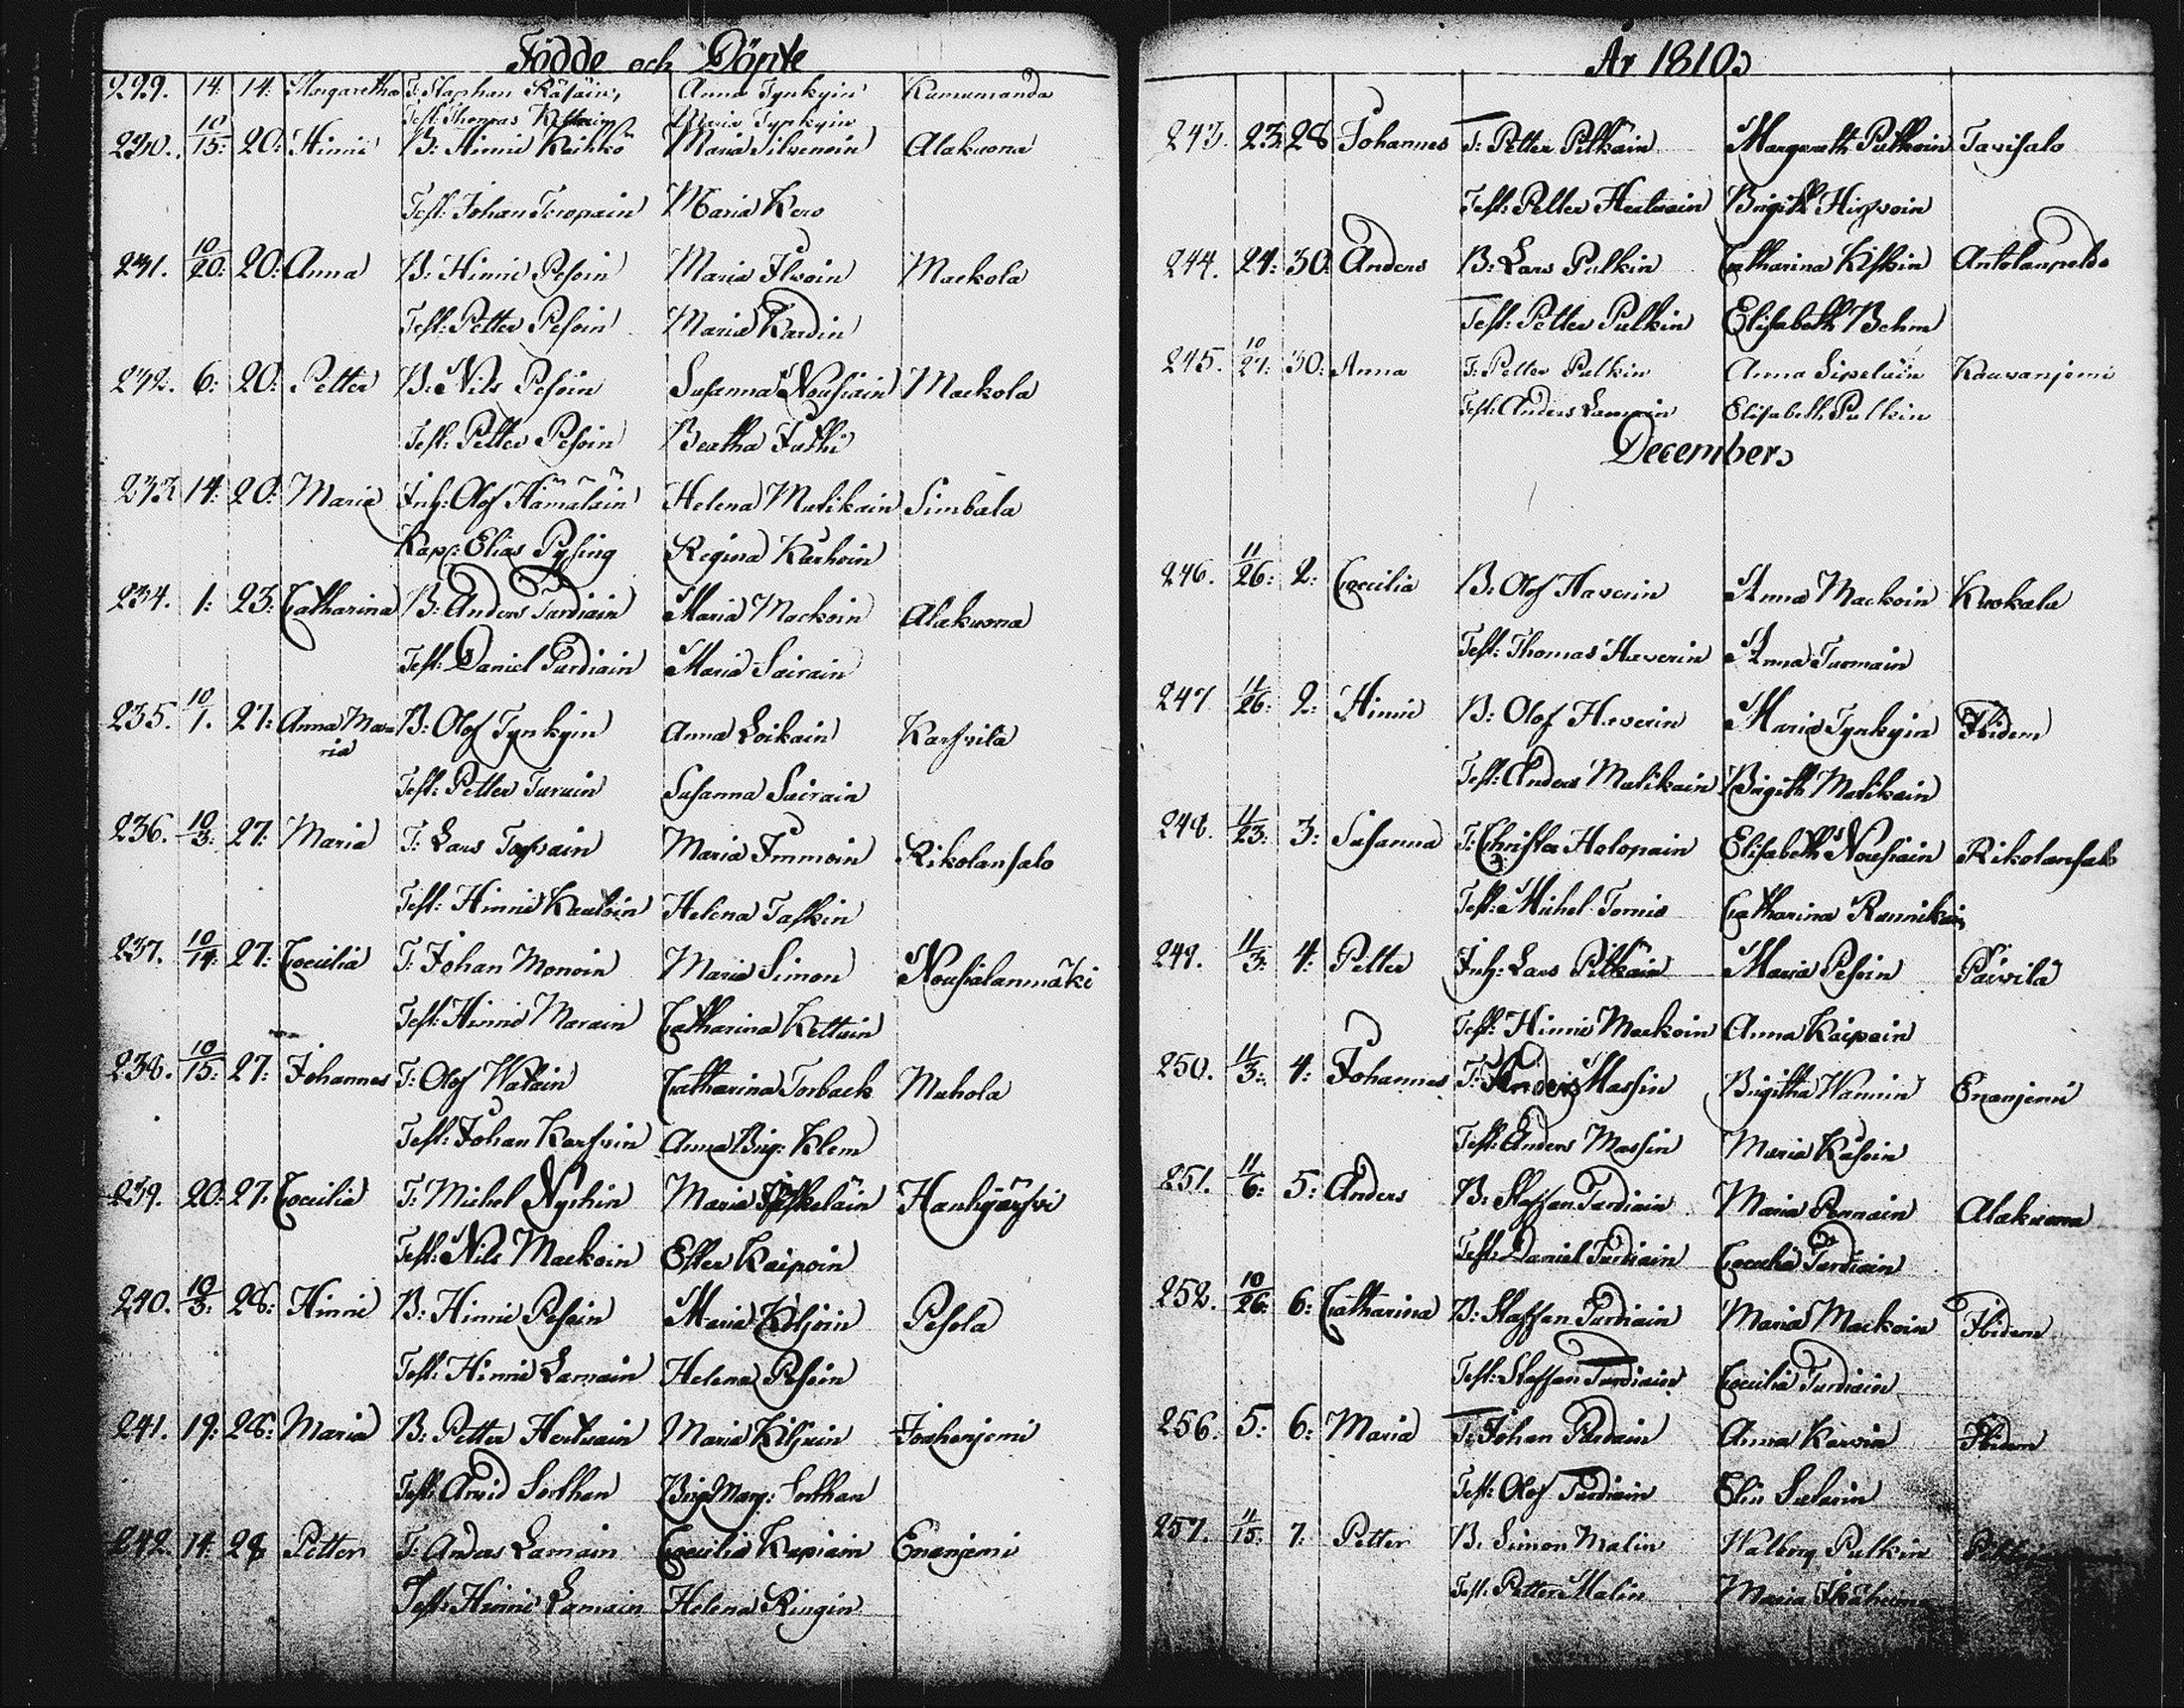 Födde och Döpte
229. 14: 14: Margaretha T: Staphan Räsäin, Anna Tynkyin Kumumanda
Test: Thomas Maria Tynkyin
230. 10/15: 20: Hinric B: Hinric Kaihko Maria Silvenoin Alakuona
Test: Johan Toropain Maria Kero
231. 10/20: 20: Anna B: Hinric Pesoin Maria Ilvoin Mackola
Test: Petter Pesoin Maria Kardin
232. 6: 20: Petter B: Nils Pesoin Susanna Nousiain Mackola
Test: Petter Pesoin Beatha Juthi
233. 14: 20: Maria Inh: Olof Hämäläin Helena Matikain Simbala
Kap: Elias Pysing Regina Karhoin
234. 1: 23: Catharina B: Anders Tardiain Maria Mackoin Alakuona
Test: Daniel Tardiain Maria Sairain
235. 10/1. 27: Anna Ma=ria B: Olof Tynkyin Anna Loikain Karsvila
Test: Petter Turuin Susanna Sairain
236. 10/3: 27: Maria T: Lars Maria Immoin Rikolansalo
Test: Hinric Kauloin Helena Taskin
237. 10/14: 27: Coecilia T: Johan Monoin Maria Simon Nousialanmäki
Test: Hinric Marain Catharina Kettuin
238. 10/15: 27: Johannes T: Olof Watain Catharina Torback Muhola
Test: Johan Karsvin Anna Brig: Klem
239. 20: 27: Coecilia T: Michel Nyshin Maria Hauhijärfvi
Test: Nils Mackoin Ester Kaipoin
240. 10/3: 28: Hinric B: Hinric Pesoin Maria Koljoin Pesola
Test: Hinric Lamain Helena Pesoin
241. 19: 28: Maria B: Petter Hertuain Maria Kiljuin Joahenjemi
Test: Arvid Sorthan Brig Marg: Sorthan
242. 14: 28 Petter T: Anders Lamain Coecilia Kapiain Enanjemi
Test: Hinric Lamain Helena Ringin
År 1810
243. 23: 28 Johannes T: Petter Pitkäin Margareth Putkoin Tavisalo
Test: Petter Hertuain Brigith Hirfvoin
244. 24: 30: Anders B: Lars Pulkin Catharina Kiskin Antolanpeldo
Test: Petter Pulkin Elisabeth Behm
245. 10/27: 30: Anna T: Petter Pulkin Anna Sipeläin Kauvanjemi
Test: Anders Lamain Elisabeth Pulkin
December
246. 11/26: 2: Coecilia B: Olof Haverin Anna Mackoin Kuokala
Test: Thomas Haverin Anna Turmain
247 11/26: 2: Hinric B: Olof Haverin Maria Tynkyin Ibidem
Test: Anders Matikain Brigith Matikain
248. 11/23: 3: Susanna T: Christer Holopain Elisabeth Nousiain Rikolansalo
Test: Michel Tornis Catharina Rannikain
249. 11/3: 4: Petter Inh: Lars Pitkäin Maria Pesoin Päivilä
Test: Hinric Mackoin Anna Kaipain
250. 11/3: 4: Johannes T: Anders Massin Brigitha Wannin Enanjemi
Test: Anders Massin Maria Käsoin
251. 11/6: 5: Anders B: Staffan Tardiain Maria Pennain Alakuona
Test: Daniel Tardiain Coecilia Tardiain
252. 10/26: 6: Catharina B: Staffan Tardiain Maria Mackoin Ibidem
Test: Staffan Tardiain Coecilia Tardiain
256. 5: 6: Maria T: Johan Anna Karvin Ibidem
Test: Olof Tardiain Elin Sularin
257. 11/15: 7: Petter B: Simon Malin Walborg Pulkin
Test: Petter Malin Maria